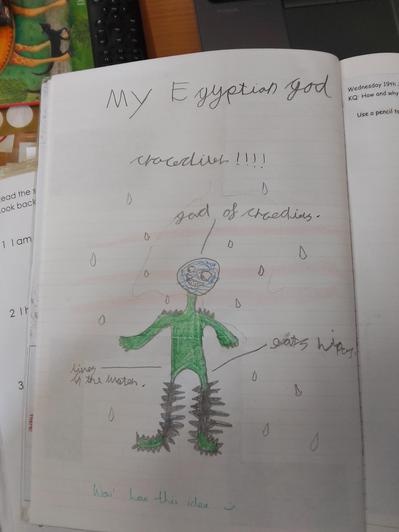 My Egyptian god
!!!!
god of
lives
in the water.
eats
Wow! love this idea
Wednesday 19th
KQ: How and why
Use a pencil to
Read the
Look back
1 I am
2 I
3